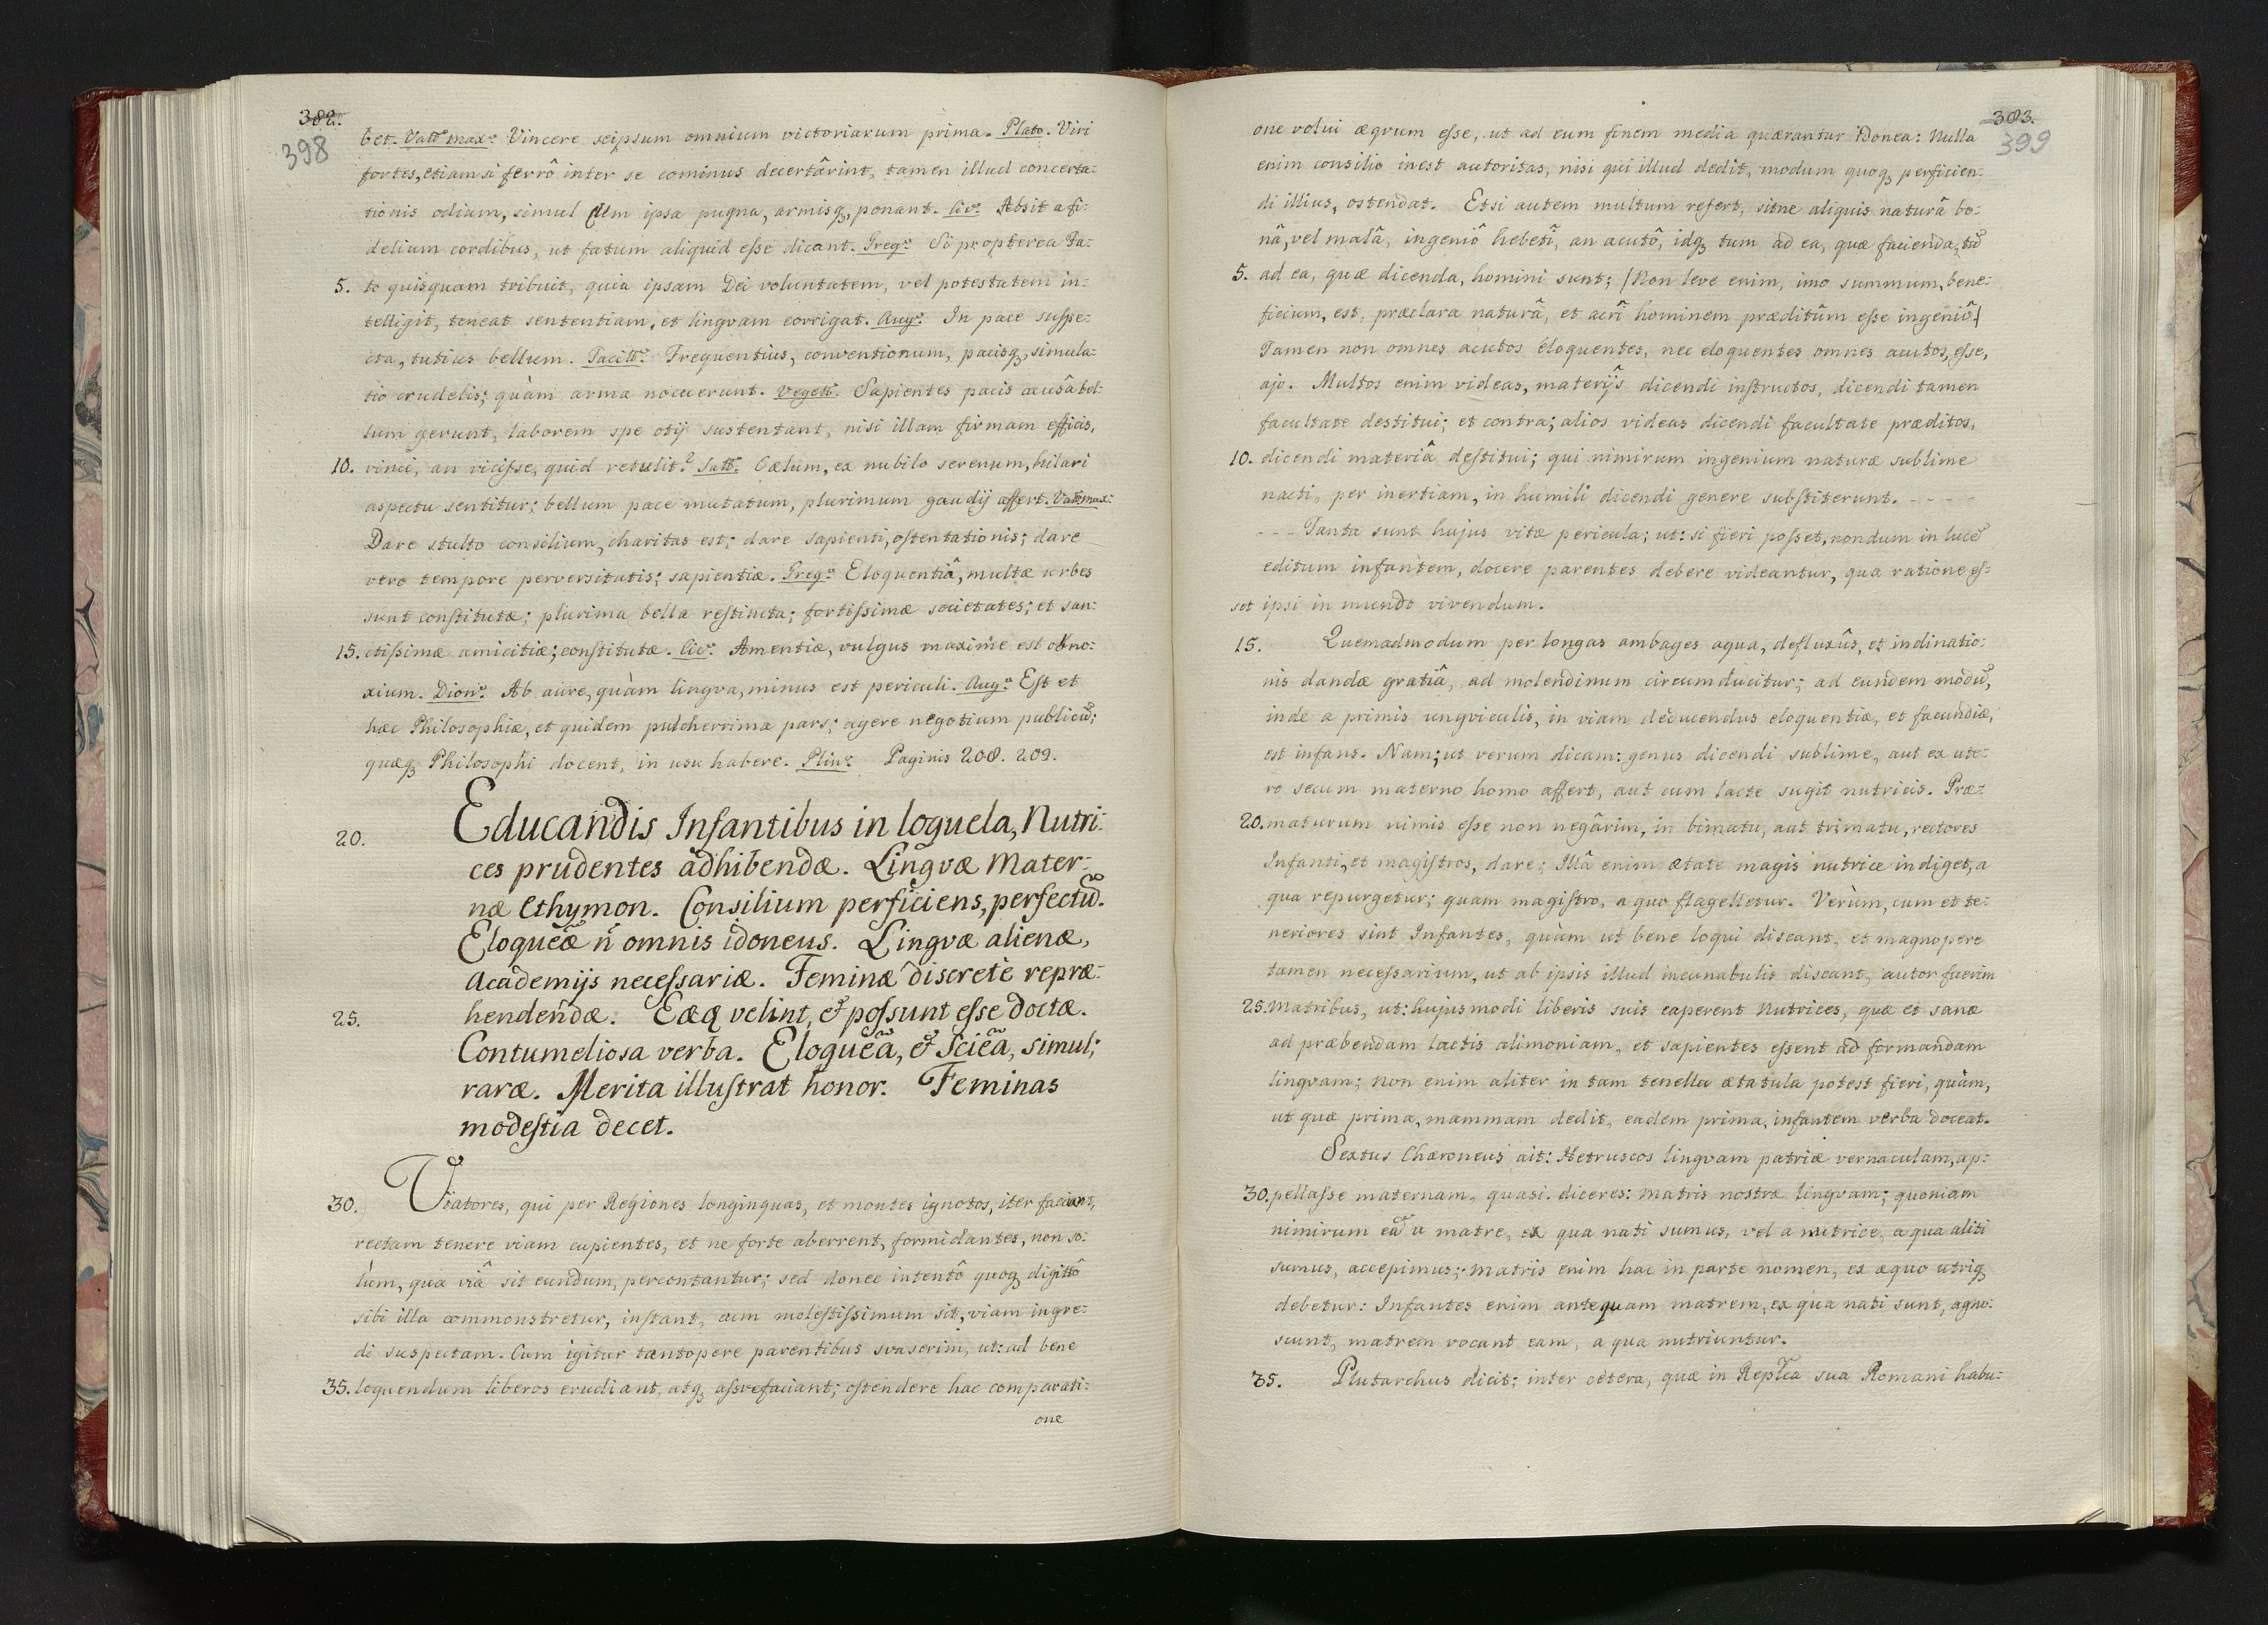 382.
398
bet. Vall: max: Vincere seipsum omnium victoriarum prima. Plato. Viri
fortes, etiam si ferrô inter se cominus decertârint, tamen illud concerta:
tionis odium, simul cum ipsa pugna, armisq, ponant. Cic: Absit a fi:
delium cordibus, ut fatum aliquid esse dicant. Greg: Si propterea fa:
5. to quisquam tribuit, quia ipsam Dei voluntatem, vel potestatem in:
telligit, teneat sententiam, et lingvam corrigat. Aug: In pace suspe:
cta, tutius bellum. Tacitt: Frequentius, conventionum, pacisq, simula:
tio crudelis; quàm arma nocuerunt. Vegett: Sapientes pacis causâ bel:
lum gerunt, laborem spe otij sustentant, nisi illam firmam efficis,
10. vinci, an vicisse, quid retulit? Sall: Cælum, ex nubilo serenum, hilari
aspectu sentitur; bellum pace mutatum, plurimum gaudij affert. Val: max:
Dare stulto consilium, charitas est; dare sapienti, ostentationis; dare
vero tempore perversitatis; sapientiæ. Greg: Eloquentiâ, multæ urbes
sunt constitutæ; plurima bella restincta; fortissimæ societates; et san:
15. ctissimæ amicitiæ; constitutæ. Cic: Amentiæ, vulgus maxime est obno:
xium. Dion: Ab aure, quàm lingva, minus est periculi. Aug: Est et
hæc Philosophiæ, et quidem pulcherrima pars; agere negotium publicũ;
quæq Philosophi docent, in usu habere. Plin: Paginis 208. 209.
20. Educandis Infantibus in loquela, Nutri:
ces prudentes adhibendæ. Lingvæ Mater:
næ Ethymon. Consilium perficiens, perfectũ.
Eloquẽæ ñ omnis idoneus. Lingvæ alienæ,
Academijs necessariæ. Feminæ discretè repræ:
25. hendendæ. Eæq velint, et possunt esse doctæ.
Contumeliosa verba. Eloquẽa, et Sciẽa, simul;
raræ. Merita illustrat honor. Feminas
modestia decet.
30. Viatores, qui per Regiones longinquas, et montes ignotos, iter faciunt,
rectam tenere viam cupientes, et ne forte aberrent, formidantes, non so:
lùm, qua viâ sit eundum, percontantur; sed donec intentô quoq digittô
sibi illa commonstretur, instant, cum molestissimum sit, viam ingre:
di suspectam. Cum igitur tantopere parentibus svaserim, ut: ad bene
35. loquendum liberos erudiant, atq assvefaciant; ostendere hac comparati:
one
383.
399
one volui æqvum esse, ut ad eum finem media quærantur idonea: Nulla
enim consilio inest autoritas, nisi qui illud dedit, modum quoq perficien:
di illius, ostendat. Etsi autem multum refert, sitne aliquis naturâ bo:
nâ, vel malâ, ingeniô hebetî, an acutô, idq tum ad ea, quæ facienda, tũ
5. ad ea, quæ dicenda, homini sunt; (Non leve enim, imo summum, bene:
ficium, est, præclara naturâ, et acrî hominem præditûm esse ingeniô)
Tamen non omnes acutos Eloquentes, nec eloquentes omnes acutos, esse,
ajo. Multos enim videas, materijs dicendi instructos, dicendi tamen
facultate destitui; et contra; alios videas dicendi facultate præditos,
10. dicendi materiâ destitui; qui nimirum ingenium naturæ sublime
nacti, per inertiam, in humili dicendi genere substiterunt. - - - -
- - - Tanta sunt hujus vitæ pericula; ut: si fieri posset, nondum in lucẽ
editum infantem, docere parentes debere videantur, qua ratione es:
set ipsi in mundo vivendum.
15. Quemadmodum per longas ambages aqua, defluxûs, et inclinatio:
nis dandæ gratiâ, ad molendinum circumducitur; ad eundem modũ,
inde a primis ungviculis, in viam deducendus eloquentiæ, et facundiæ,
est infans. Nam; ut verum dicam: genus dicendi sublime, aut ex ute:
ro secum materno homo affert, aut cum lacte sugit nutricis. Præ:
20. maturum nimis esse non negârim, in bimatu, aut trimatu, rectores
Infanti, et magistros, dare; Illâ enim ætate magis nutrice indiget, a
qua repurgetur; quam magistro, a quo flagelletur. Verùm, cum et te:
neriores sint Infantes, quàm ut bene loqui discant, et magnopere
tamen necessarium, ut ab ipsis illud incunabulis discant, autor fuerim
25. Matribus, ut: hujusmodi liberis suis caperent Nutrices, quæ et sanæ
ad præbendam lactis alimoniam, et sapientes essent ad formandam
lingvam; non enim aliter in tam tenella ætatula potest fieri, quàm,
ut quæ prima, mammam dedit, eadem prima, infantem verba doceat.
Sextus Chæroneus ait: Hetruscos lingvam patriæ vernaculam, ap:
30. pellasse maternam, quasi diceres: Matris nostræ lingvam; quoniam
nimirum eã a matre, ex qua nati sumus, vel a nutrice, a qua aliti
sumus, accepimus; Matris enim hac in parte nomen, ex æquo utriq
debetur: Infantes enim antequam matrem, ex qua nati sunt, agno:
scunt, matrem vocant eam, a qua nutriuntur.
35. Plutarchus dicit; inter cetera, quæ in Replca sua Romani habu: